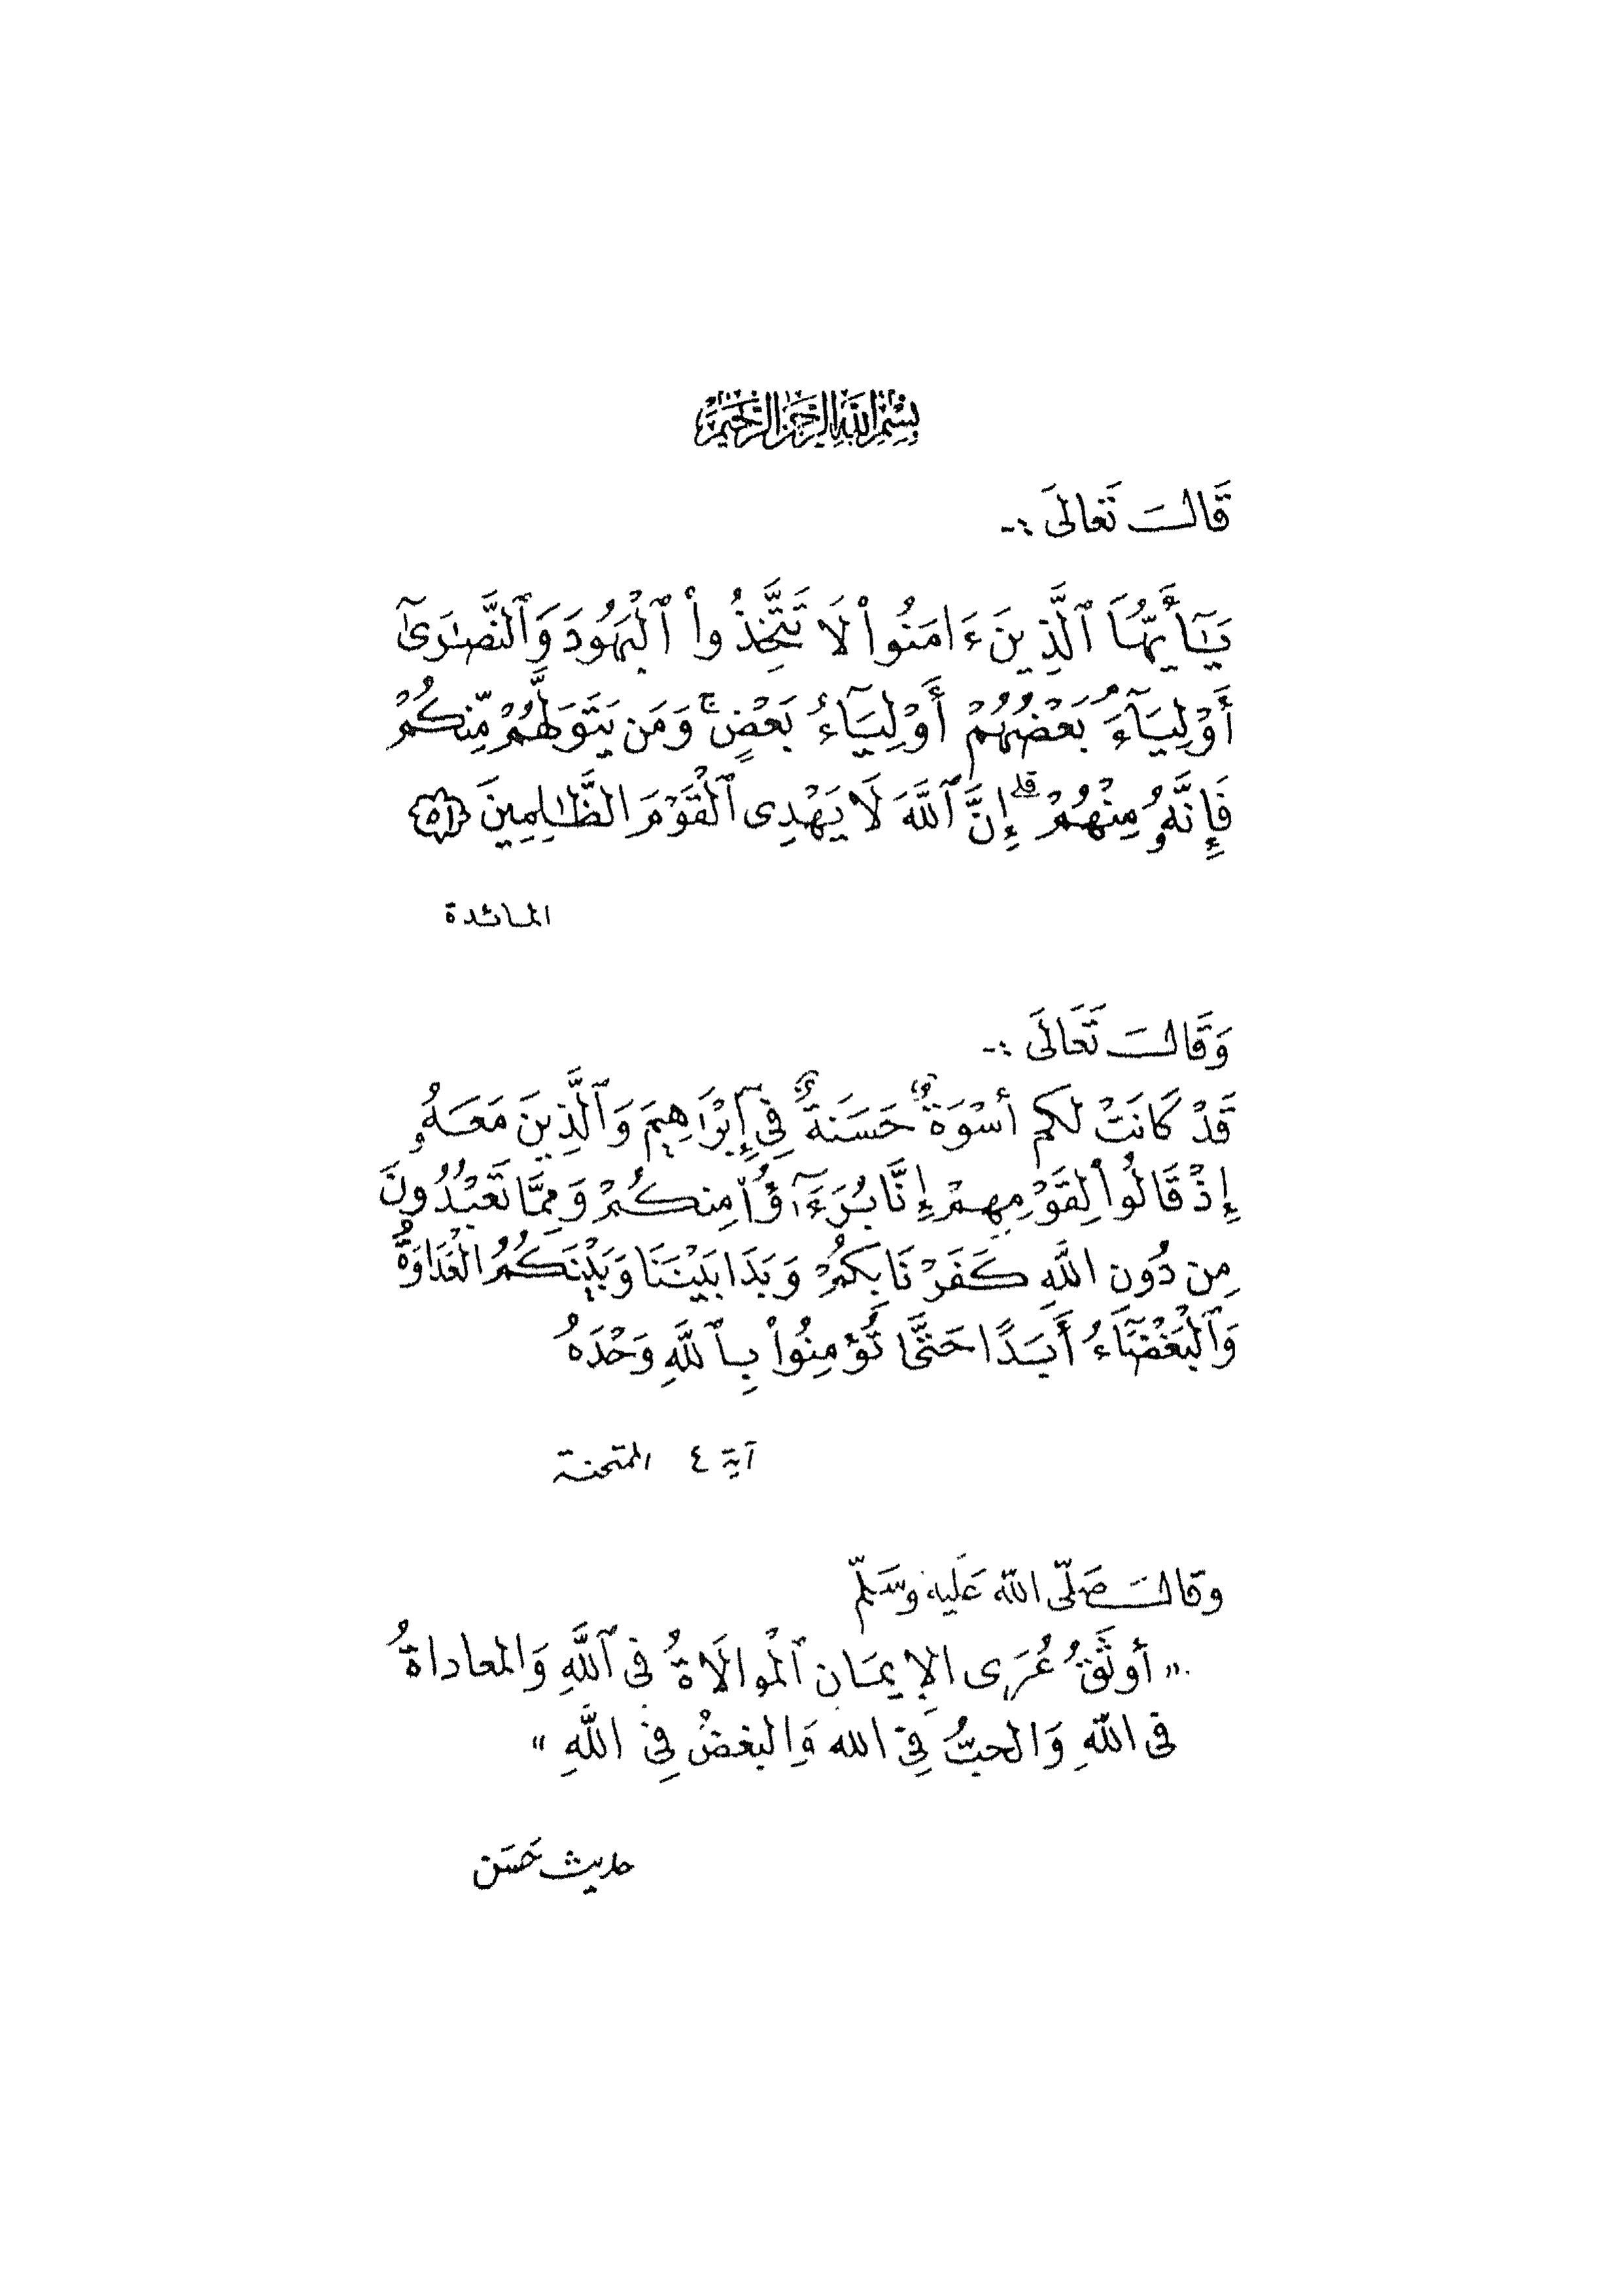 بِسْمِ اللَّهِ الرَّحْمَٰنِ الرَّحِيمِ
قَالَ تَعَالَى :-
يَـٰٓأَيُّهَا ٱلَّذِينَ ءَامَنُواْ لَا تَتَّخِذُواْ ٱلْيَهُودَ وَٱلنَّصَـٰرَىٰٓ
أَوْلِيَآءَۘ بَعْضُهُمْ أَوْلِيَآءُ بَعْضٍۚ وَمَن يَتَوَلَّهُم مِّنكُمْ
فَإِنَّهُۥ مِنْهُمْۗ إِنَّ ٱللَّهَ لَا يَهْدِى ٱلْقَوْمَ الظَّـٰلِمِينَ ﴿٥١﴾
المائدة
وَقَالَ تَعَالَى :-
قَدْ كَانَتْ لكم أُسْوَةٌ حَسَنَةٌ فِي إِبْرَاهِيمَ وَٱلَّذِينَ مَعَهُۥ
إِذْ قَالُواْ لِقَوْمِهِمْ إِنَّا بُرَءَآؤُاْ مِنكُمْ وَمِمَّا تَعْبُدُونَ
مِن دُونِ اللَّهِ كَفَرْنَا بِكُمْ وَبَدَا بَيْنَنَا وَبَيْنَكُمُ الْعَدَاوَةُ
وَٱلْبَغْضَآءُ أَبَدًا حَتَّىٰ تُؤْمِنُواْ بِٱللَّهِ وَحْدَهُ
آية ٤ الممتحنة
وقال صَلّى الله عَليه وسَلّم
" أوثَقُ عُرَى الإِيمَان ٱلْموالَاةُ فى ٱللَّهِ وَالمعاداةُ
فى اللَّهِ وَالحبُّ فِي الله وَالبغضُ فِي اللَّهِ "
حديث حَسَن